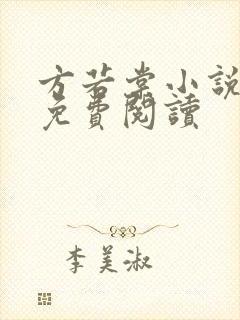 方若棠小說
免費閱讀
李美淑